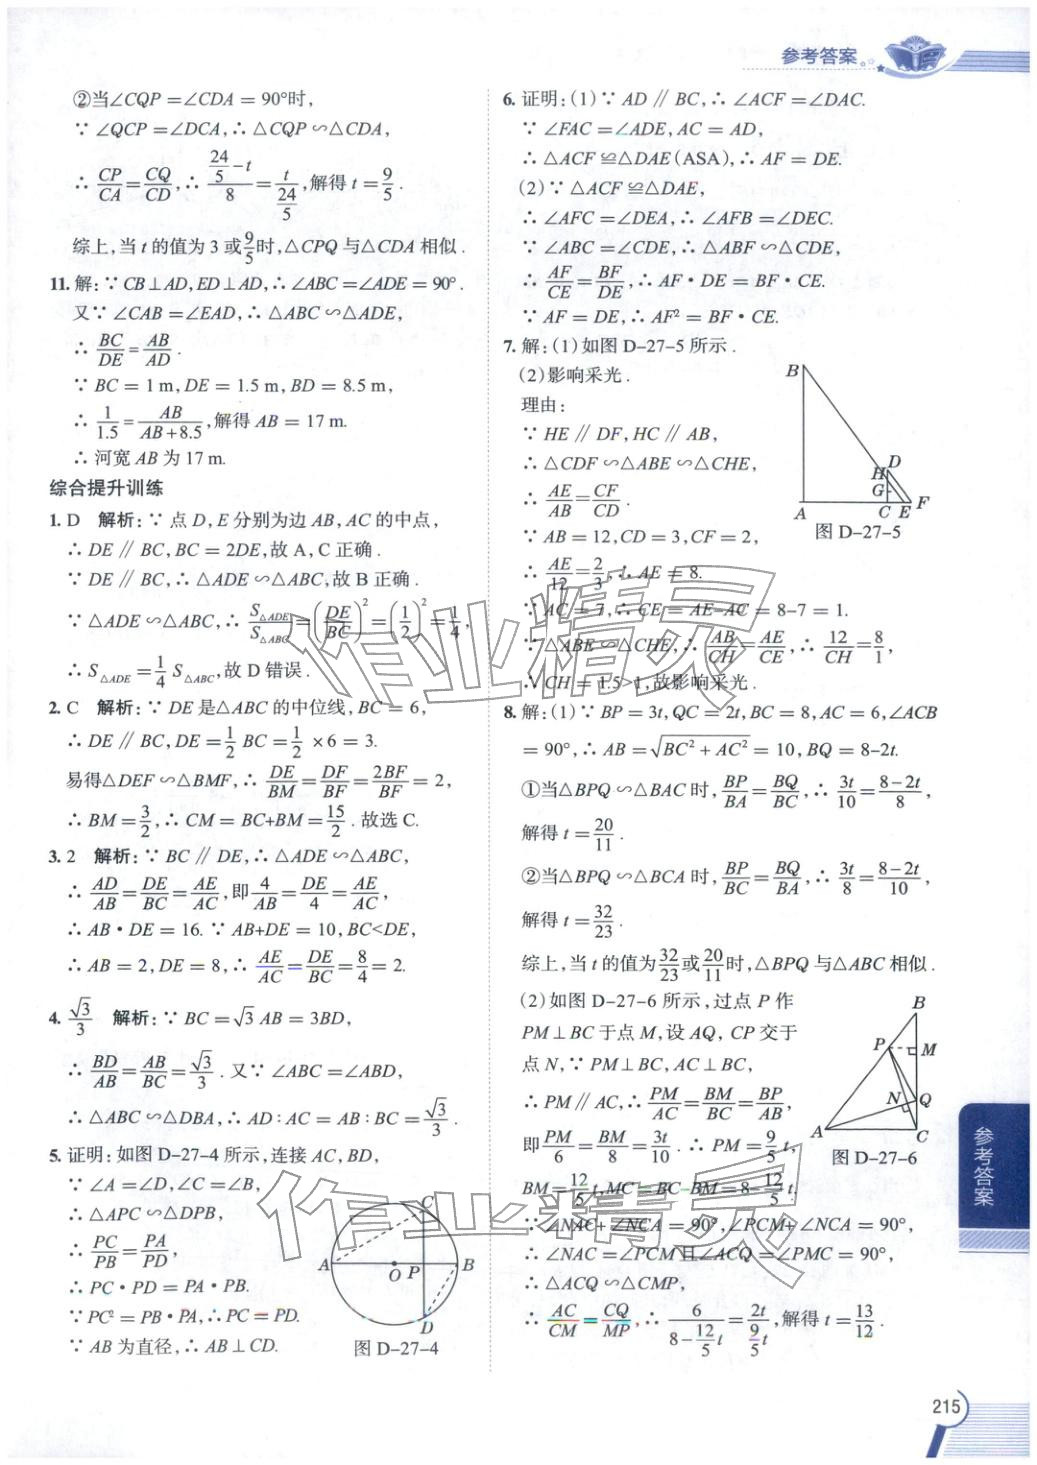 参考答案
②当∠CQP＝∠CDA＝90°时，
∵∠QCP＝∠DCA，∴△CQP∽△CDA，
∴CP/CA＝CQ/CD，∴(24/5－t)/8＝t/(24/5)，解得 t＝9/5．
综上，当 t 的值为 3 或9/5时，△CPQ 与△CDA 相似．
11. 解：∵CB⊥AD，ED⊥AD，∴∠ABC＝∠ADE＝90°．
又∵∠CAB＝∠EAD，∴△ABC∽△ADE，
∴BC/DE＝AB/AD．
∵BC＝1 m，DE＝1.5 m，BD＝8.5 m，
∴1/1.5＝AB/(AB+8.5)，解得 AB＝17 m.
∴河宽 AB 为 17 m.
综合提升训练
1. D 解析：∵点 D，E 分别为边 AB，AC 的中点，
∴DE∥BC，BC＝2DE，故 A，C 正确．
∵DE∥BC，∴△ADE∽△ABC，故 B 正确．
∵△ADE∽△ABC，∴S△ADE/S△ABC＝(DE/BC)²＝(1/2)²＝1/4，
∴S△ADE＝1/4 S△ABC，故 D 错误．
2. C 解析：∵DE 是△ABC 的中位线，BC＝6，
∴DE∥BC，DE＝1/2 BC＝1/2×6＝3.
易得△DEF∽△BMF，∴DE/BM＝DF/BF＝2BF/BF＝2，
∴BM＝3/2，∴CM＝BC+BM＝15/2．故选 C.
3. 2 解析：∵BC∥DE，∴△ADE∽△ABC，
∴AD/AB＝DE/BC＝AE/AC，即4/AB＝DE/4＝AE/AC，
∴AB·DE＝16. ∵AB+DE＝10，BC<DE，
∴AB＝2，DE＝8，∴AE/AC＝DE/BC＝8/4＝2.
4. √3/3 解析：∵BC＝√3 AB＝3BD，
∴BD/AB＝AB/BC＝√3/3．又∵∠ABC＝∠ABD，
∴△ABC∽△DBA，∴AD∶AC＝AB∶BC＝√3/3．
5. 证明：如图 D-27-4 所示，连接 AC，BD，
∵∠A＝∠D，∠C＝∠B，
∴△APC∽△DPB，
∴PC/PB＝PA/PD，
∴PC·PD＝PA·PB.
∵PC²＝PB·PA，∴PC＝PD.
∵AB 为直径，∴AB⊥CD.
C
A
O
P
B
D
图 D-27-4
6. 证明：(1)∵AD∥BC，∴∠ACF＝∠DAC.
∵∠FAC＝∠ADE，AC＝AD，
∴△ACF≌△DAE(ASA)，∴AF＝DE.
(2)∵△ACF≌△DAE，
∴∠AFC＝∠DEA，∴∠AFB＝∠DEC.
∵∠ABC＝∠CDE，∴△ABF∽△CDE，
∴AF/CE＝BF/DE，∴AF·DE＝BF·CE.
∵AF＝DE，∴AF²＝BF·CE.
7. 解：(1)如图 D-27-5 所示．
(2)影响采光．
理由：
∵HE∥DF，HC∥AB，
∴△CDF∽△ABE∽△CHE，
∴AE/AB＝CF/CD．
∵AB＝12，CD＝3，CF＝2，
∴AE/12＝2/3，∴AE＝8.
∵AC＝7，∴CE＝AE-AC＝8-7＝1.
∵△ABE∽△CHE，∴AB/CH＝AE/CE，∴12/CH＝8/1，
∴CH＝1.5>1，故影响采光．
B
H
D
G
A
C
E
F
图 D-27-5
8. 解：(1)∵BP＝3t，QC＝2t，BC＝8，AC＝6，∠ACB
＝90°，∴AB＝√(BC²＋AC²)＝10，BQ＝8-2t.
①当△BPQ∽△BAC 时，BP/BA＝BQ/BC，∴3t/10＝(8－2t)/8，
解得 t＝20/11．
②当△BPQ∽△BCA 时，BP/BC＝BQ/BA，∴3t/8＝(8－2t)/10，
解得 t＝32/23．
综上，当 t 的值为32/23或20/11时，△BPQ 与△ABC 相似．
(2)如图 D-27-6 所示，过点 P 作
PM⊥BC 于点 M，设 AQ，CP 交于
点 N，∵PM⊥BC，AC⊥BC，
∴PM∥AC，∴PM/AC＝BM/BC＝BP/AB，
即PM/6＝BM/8＝3t/10．∴PM＝9/5 t，
BM＝12/5 t，MC＝BC－BM＝8－12/5 t.
∵∠NAC+∠NCA＝90°，∠PCM+∠NCA＝90°，
∴∠NAC＝∠PCM 且∠ACQ＝∠PMC＝90°，
∴△ACQ∽△CMP，
∴AC/CM＝CQ/MP，∴6/(8－12/5 t)＝2t/(9/5 t)，解得 t＝13/12．
B
P
M
N
Q
A
C
图 D-27-6
参考答案
215
作业精灵
作业精灵